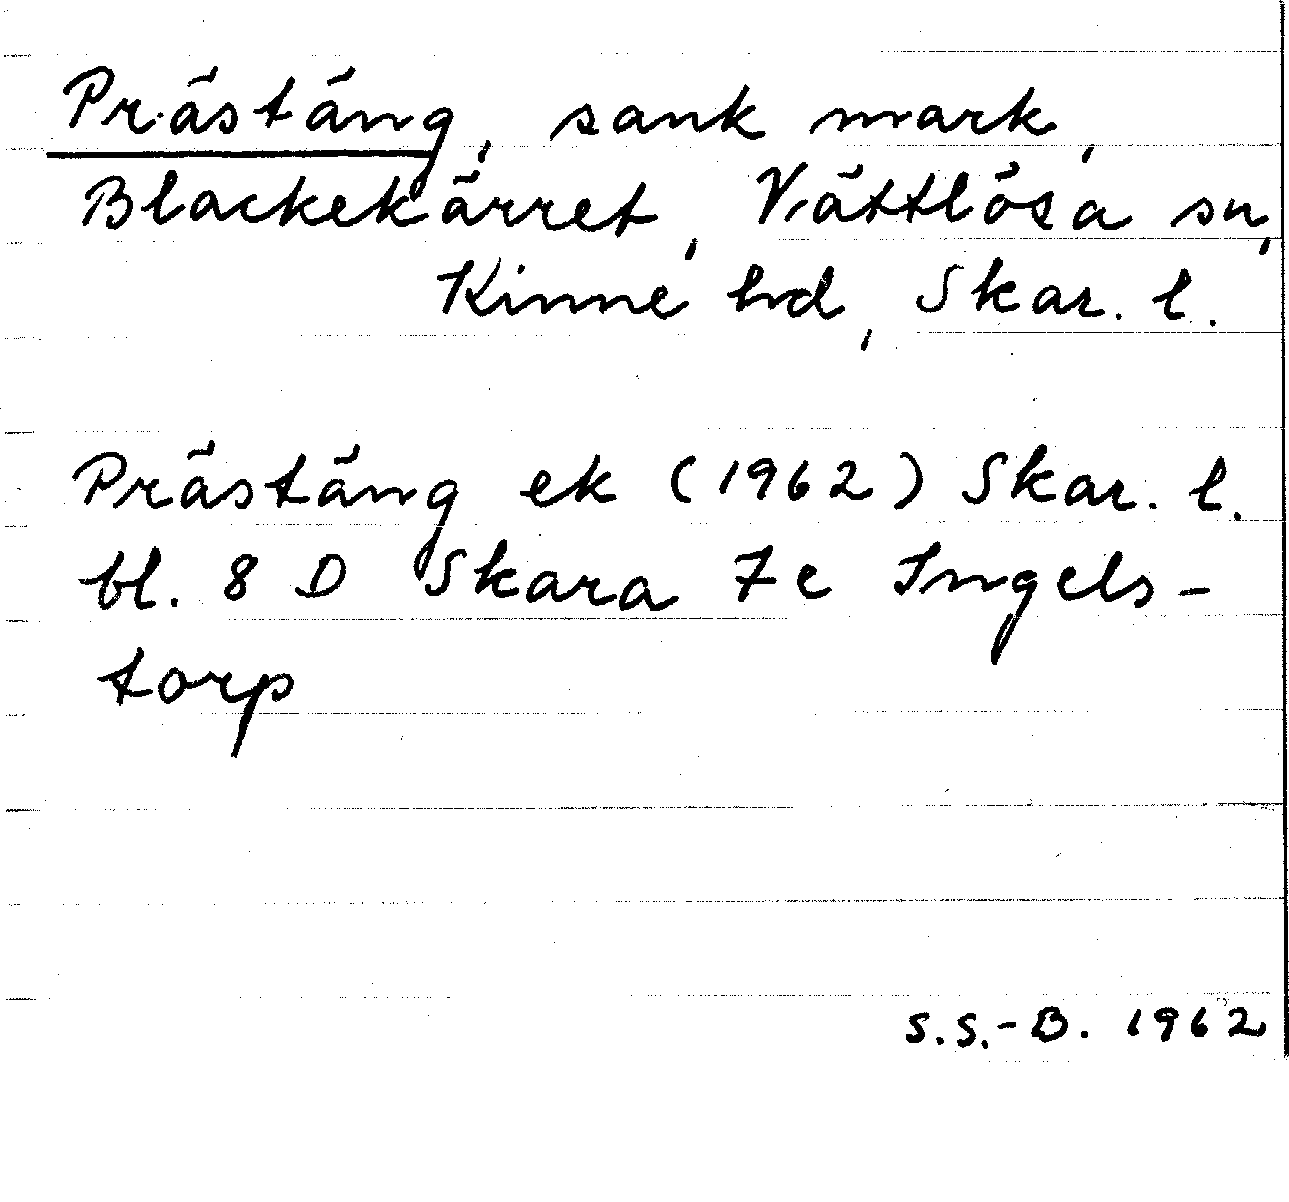 Prästäng, sank mark,
Blackekärret, Vättlösa sn,
Kinne hd, Skar. l.
Prästäng ek (1962) Skar. l.
bl. 8 D Skara 7e Ingels-
torp
S.S.-B. 1962